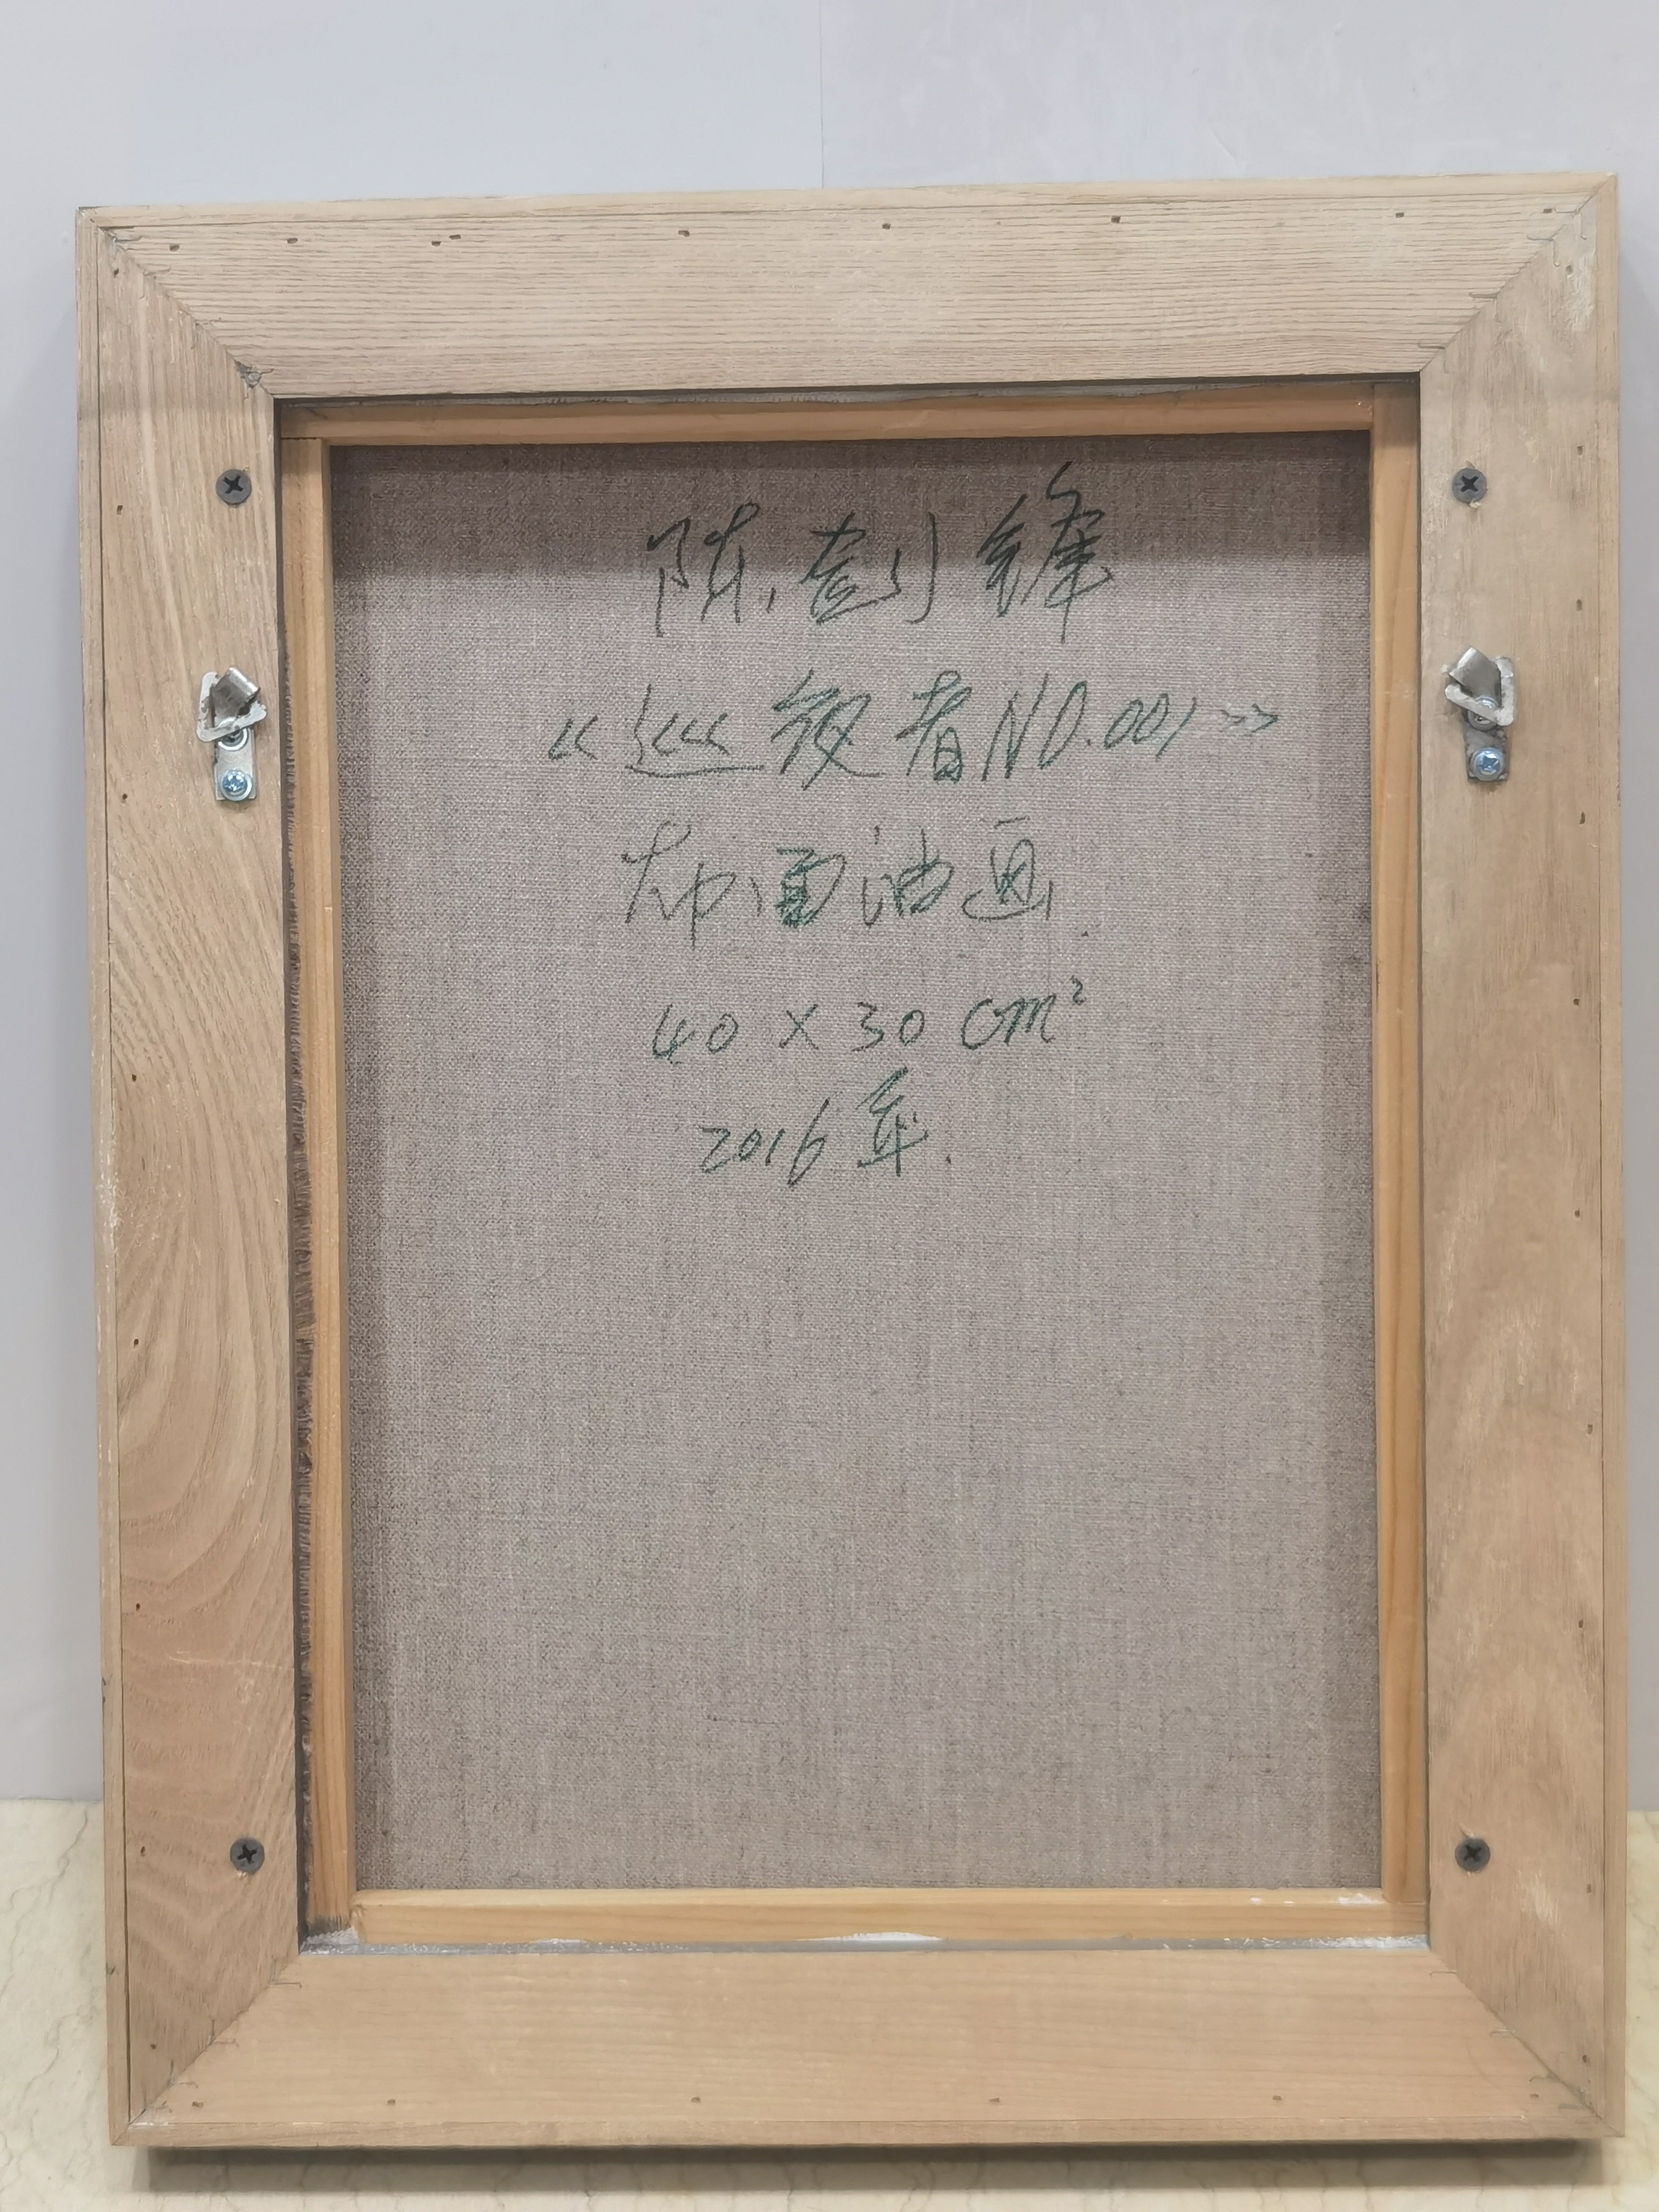 陈剑锋
《巡夜者NO.001》
布面油画
40 × 30 cm²
2016年.